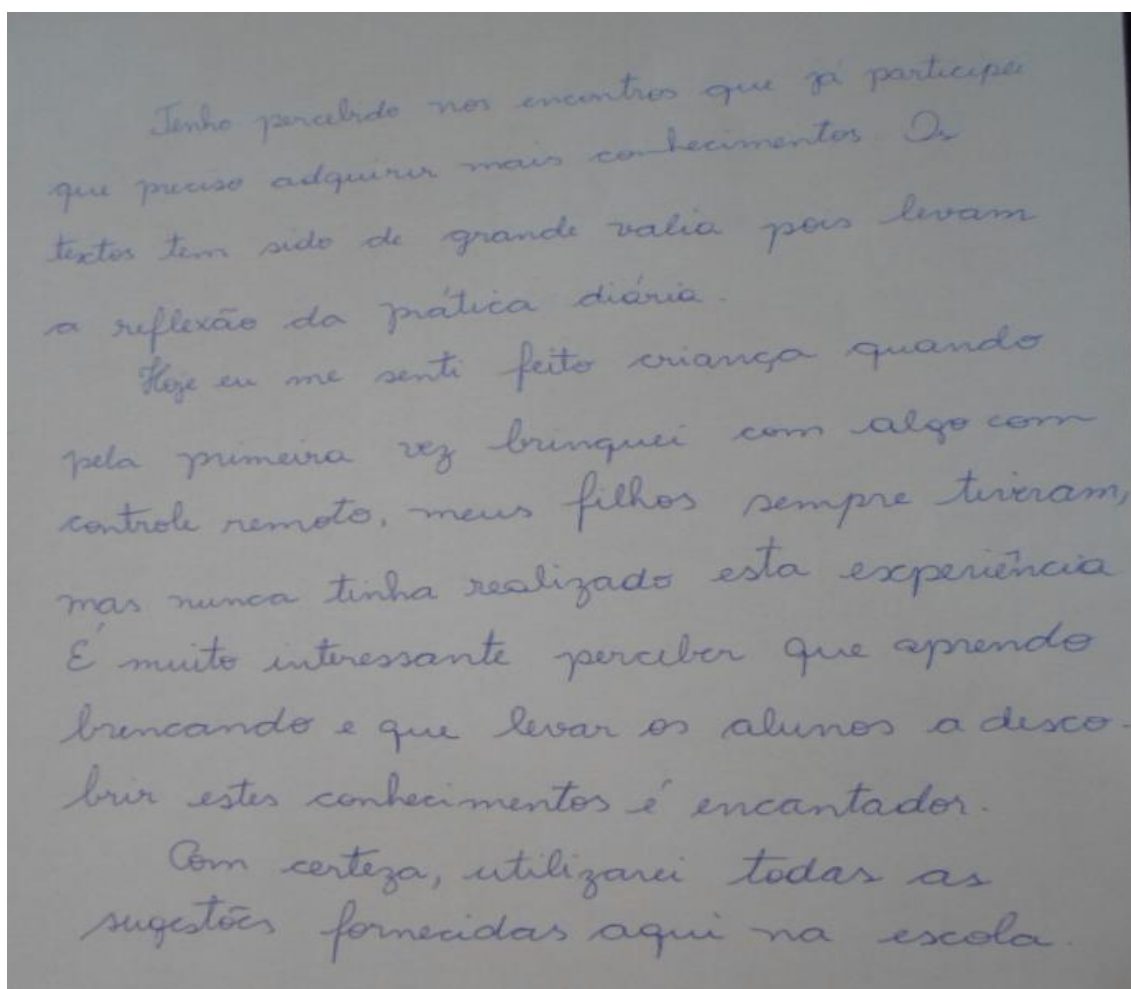 Tenho percebido nos encontros que já participei
que preciso adquirir mais conhecimentos. Os
textos tem sido de grande valia pois levam
a reflexão da prática diária.
Hoje eu me senti feito criança quando
pela primeira vez brinquei com algo com
controle remoto, meus filhos sempre tiveram,
mas nunca tinha realizado esta experiência
É muito interessante perceber que aprendo
brincando e que levar os alunos a desco-
brir estes conhecimentos é encantador.
Com certeza, utilizarei todas as
sugestões fornecidas aqui na escola.